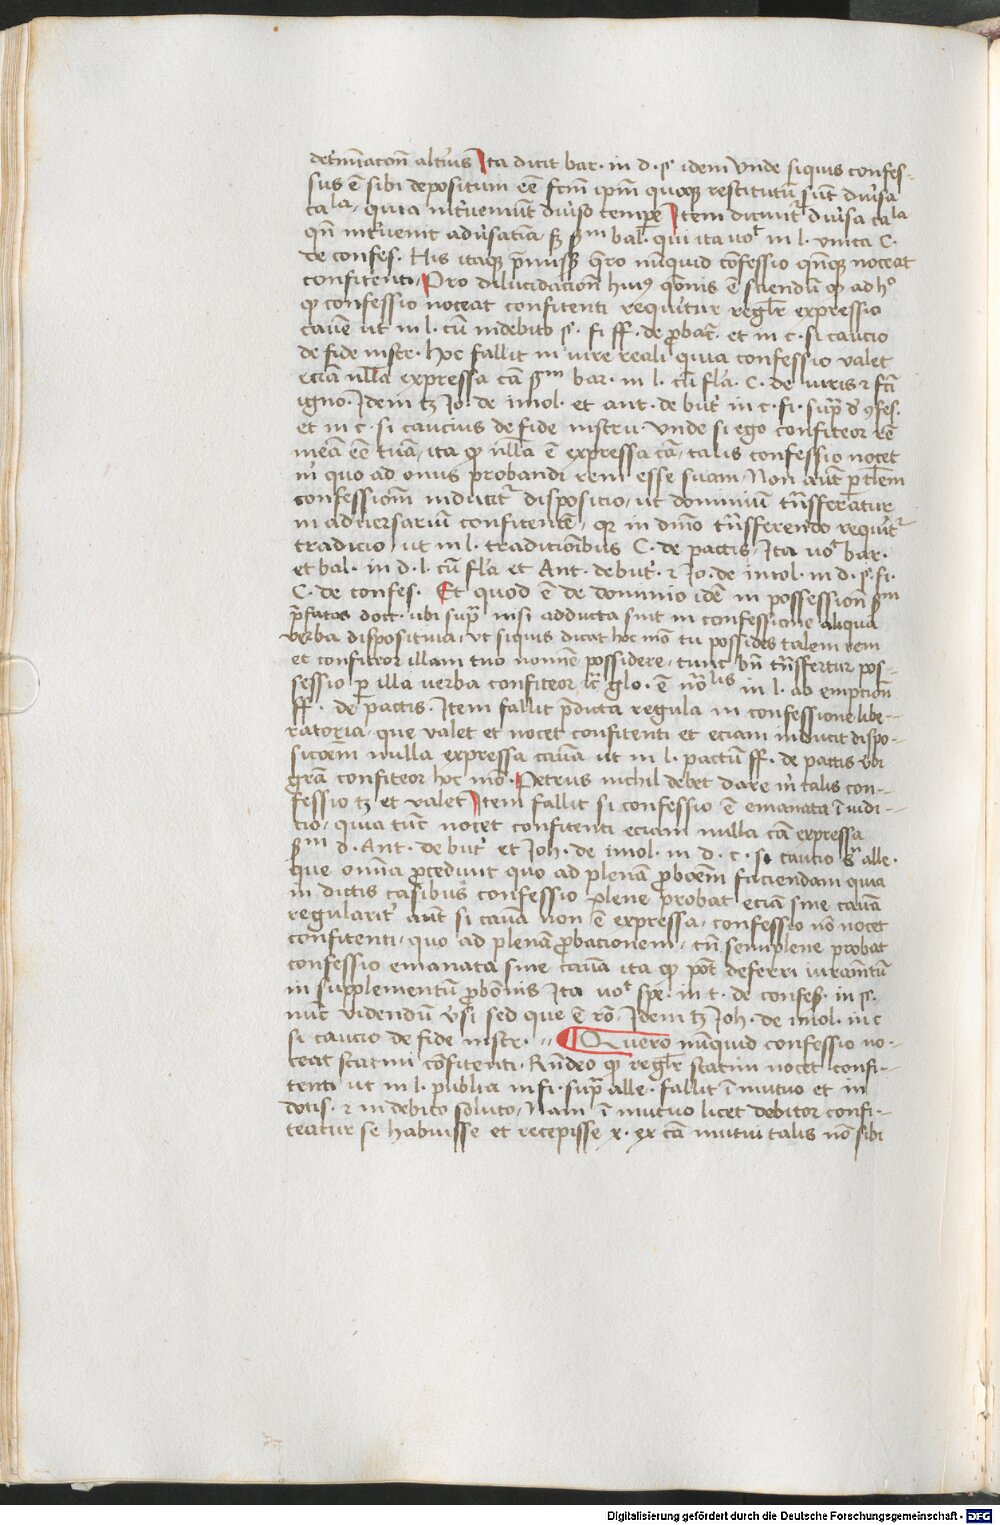 determinacom̄ alteriꝰ Ita dicit bar. in d. §. idem Vnde siquis confes-
sus ē sibi depositum eē fcm̄ ipm̄ quoqꝫ restitutū sunt diu'sa
ca^la, quia int'ueniūt diu'so tempe Item dicunt' diu'sa ca^la
qn̄ int'uenit adu'satia, sꝫ s^m bal. qui ita no^t in l. vnica C.
de confes. His itaqꝫ p̄missꝫ q̄ro nūquid cōfessio qn̄qꝫ noceat
confitenti, Pro dilucidacion̄ huiꝰ qōnis ē sciendū qꝫ ad h^o
qꝫ confessio noceat confitenti requiritur regl̄r expressio
cause ut in l. cū indebito §. fi ff. de ꝓbat'. et in c. si caucio
de fide instr. hoc fallit in iure reali quia confessio valet
eciā nlla expressa cā s^m bar. in l. cū fla. C. de iuris ⁊ fcī
igno. Idem tꝫ Jo. de imol. et ant. de but' in c. fi. sup̄ d' ꝯfes.
et in c. si caucius de fide instru. Vnde si ego confiteor rē
meā eē tuā, ita qꝫ nlla ē expressa cā, talis confessio nocet
m' quo ad onus probandi rem esse suam, Non aūt ꝑ tlem
confessionem inducit' disposicio, ut dominiū tn̄sferatur
in aduersariū confitentē, qꝛ in dnīo tn̄sferendo requirit'
tradicio, ut in l. traditionibus C. de pactis, Ita no^t bar.
et bal. in d. l. cū fla et Ant. de but'. ⁊ Jo. de imol. in d. c. fi.
C. de confes. Et quod ē de dominio idē in possession̄ s^m
p̄fatos doct. ubi sup̄ nisi adducta sint in confessione aliqua
verba dispositiua, ut siquis dicat hoc mō tu possides talem rem
et confiteor illam tuo nomīe possidere, tunc bn̄ tn̄sfertur pos-
sessio ꝑ illa uerba confiteor ic̄ glo. ē no^lis in l. ab emption̄
ff. de pactis. Item fallit p̄dicta regula in confessione libe-
ratoria, que valet et nocet confitenti et eciam inducit dispo-
sicoēm nulla expressa causa ut in l. pactū ff. de pactis vbi
grā confiteor hoc mō. Petrus nichil debet dare m' talis con-
fessio tꝫ et valet Item fallit si confessio ē emanata ī iudi-
cio, quia tūc nocet confitenti eciam nulla cā expressa
s^m d. Ant. de but' et Joh. de imol. in d. c. si caucio s^r alle.
que omīa procedunt quo ad plenā ꝓbcoēm faciendam quia
in dictis casibus confessio plene probat eciā sine causa
regularit' aut si causa non ē expressa, confessio nō nocet
confitenti, quo ad plenā ꝓbacionem, tn̄ semiplene probat
confessio emanata sine causa ita qꝫ pōt deferri iuramtū
in supplementū ꝓbōnis Ita no^t spe. in t. de confes. in §.
nūc videndū v'si sed que ē rō, Idem tꝫ Joh. de imol. in c
si caucio de fide instr. ¶ Quero nūquid confessio no-
ceat statim cōfitenti. Rn̄deo qꝫ regl̄r statim nocet confi-
tenti ut in l. publia in fi. sup̄ alle. fallit ī mutuo et in
dotis. ⁊ indebito soluto, Nam ī mutuo licet debitor confi-
teatur se habuisse et recepisse x. ex cā mutui talis nō sibi
Digitalisierung gefördert durch die Deutsche Forschungsgemeinschaft - DFG